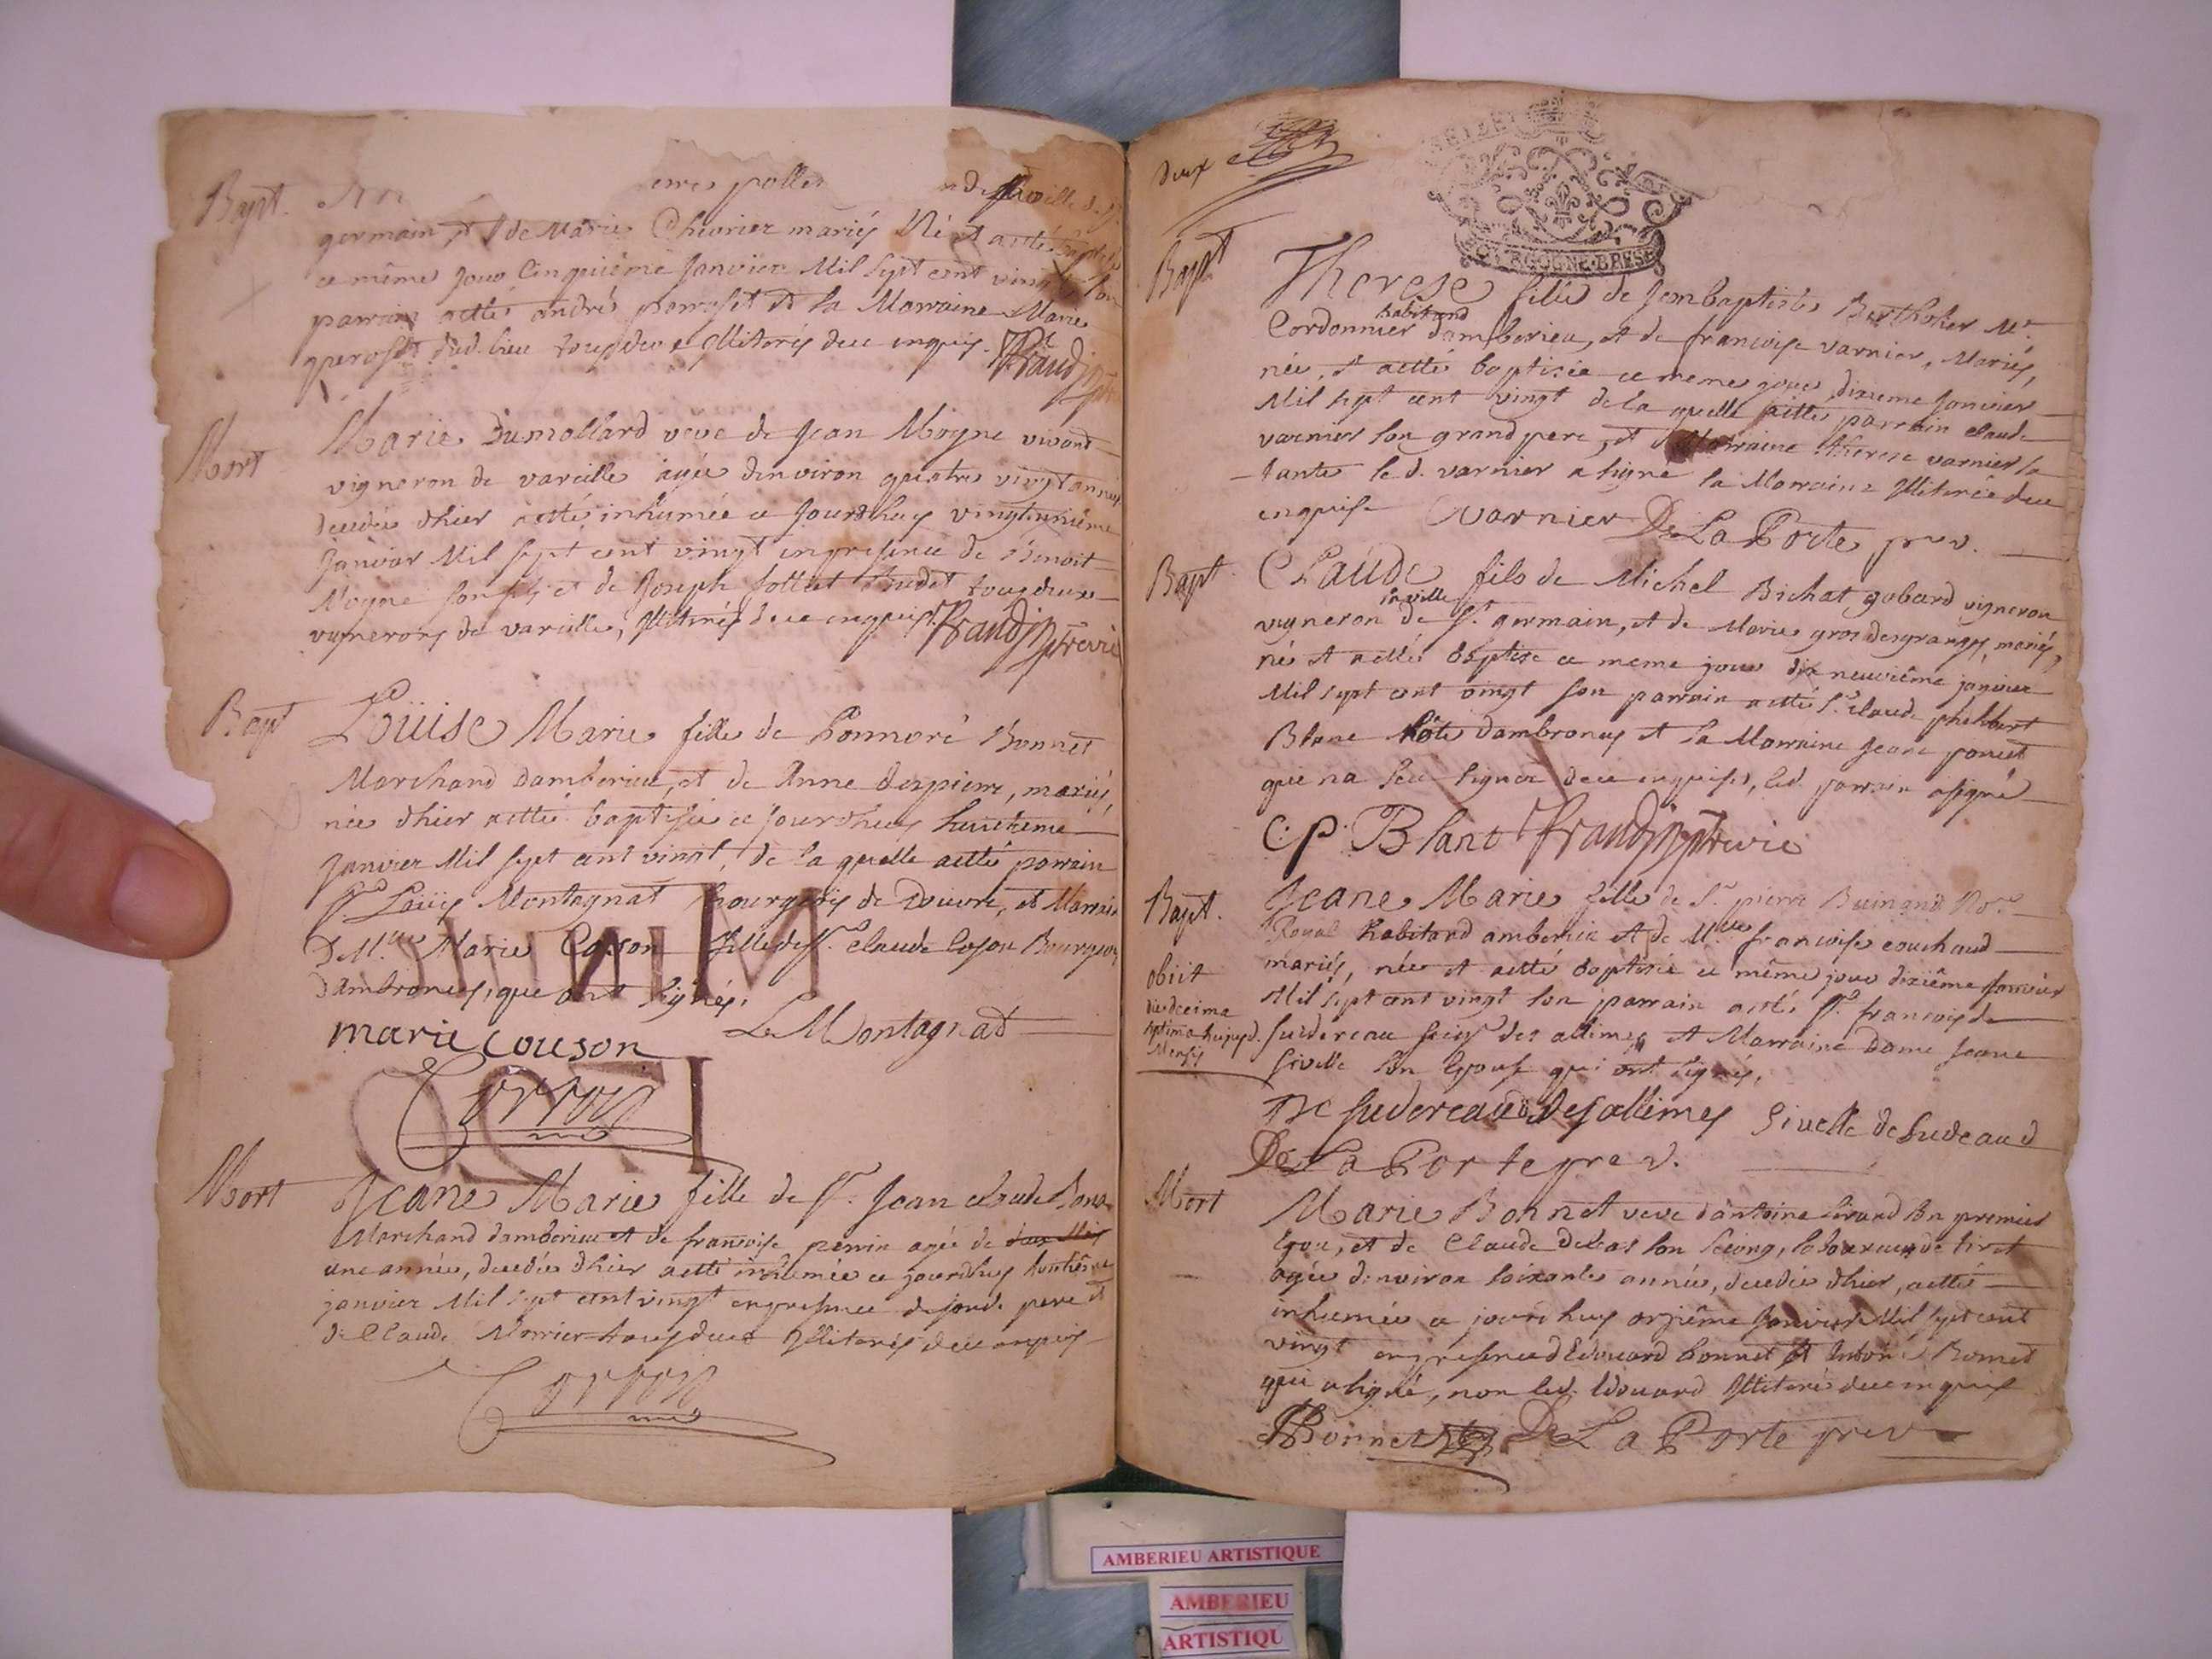 Bapt.
germain et de Marie Chevrier mariés Né et aetté baptisé
ce même jour Cinquième Janvier Mil sept cent vingt son
parrain aetté andré perroset et la Marraine Marie
perroset dud. lieu tous deux Illiterés deue enquis.
Mort
Marie Dumollard veve de Jean Moyne vivand
vigneron de vareille agée denviron quatre vingt années
decedée dhier aetté inhumée ce Jourdhuy vingtunième
Janvier Mil sept cent vingt en presence de Benoit
Moyne son fils et de Joseph tous deux
vignerons de vareille, Illiterés deue enquis.
Bapt
Loüise Marie fille de honnoré Bonnet
Marchand damberieu, et de Anne despierre, mariés,
née dhier aetté baptisée ce jourdhuy huictieme
Janvier Mil sept cent vingt, de la quelle aetté parrain
Sr. Loüis Montagnat bourgeois de Douvre, et Marraine
D. Mlle Marie Coson fille de Sr. Claude Coson Bourgeois
dambronay, que ont signés.
marie couson L. Montagnat
Corron
Mort
Jeane Marie fille de Sr. Jean claude Bonet
Marchand damberieu et de francoise perrin agée de deux Mois
une année, decedée dhier aetté inhumée ce jourdhuy huitième
janvier Mil sept cent vingt en presence de sond. pere et
de Claude tous deux Illiterés deue enquis
Corron
deux
BOURGOGNE·BRESSE
Bapt
Therese fille de Jean baptiste Bertholier Me.
habitand
Cordonnier damberieu, et de francoise varnier, Mariés,
née, et aetté baptisée ce meme jour dixieme Janvier
Mil sept cent vingt de la quelle aetté parrain claude
varnier son grand pere, et Marraine therese varnier sa
tante le d. varnier a signé la Marraine Illiterée deue
enquise Varnier De La Porte prev.
Bapt
CLaude fils de Michel Bichat gobard vigneron
la ville
vigneron de St. germain, et de Marie gros desgranges, mariés,
né et aetté baptisé ce meme jour dix neuvième janvier
Mil sept cent vingt son parrain aetté Sr. claude philibert
Blanc hôte dambronay et la Marraine Jeane poncet
que na sceu signer deue enquise, led. parrain a signé
C: P. Blanc
Bapt.
Jeane Marie fille de Sr. pierre Buinand Nore.
Royal habitand amberieu et de Mlle francoise couchaud
mariés, née et aetté baptisée ce même jour dixième Janvier
Mil sept cent vingt son parrain aetté Sr. francois de
obiit
die decima
septima hujusd.
Mensis
Sudereau seigr des allimes et Marraine Dame Jeane
Sivelle son Epouse qui ont signés.
De Sudereaud Des allimes Sivelle de Sudeaud
De La Porte prev.
Mort
Marie Bonnet veve dantoine Sirand son premier
Epou, et de Claude Debeas son second, laboureur de tiret
agée denviron soixante année, decedée dhier, aetté
inhumée ce jourdhuy onzième Janvier Mil sept cent
vingt en presence dEdouard bonnet et Bonnet
que a signé, non led. Edouard Illiteré deue enquis
Bonnet De La Porte prev
AMBERIEU ARTISTIQUE
AMBERIEU
ARTISTIQU